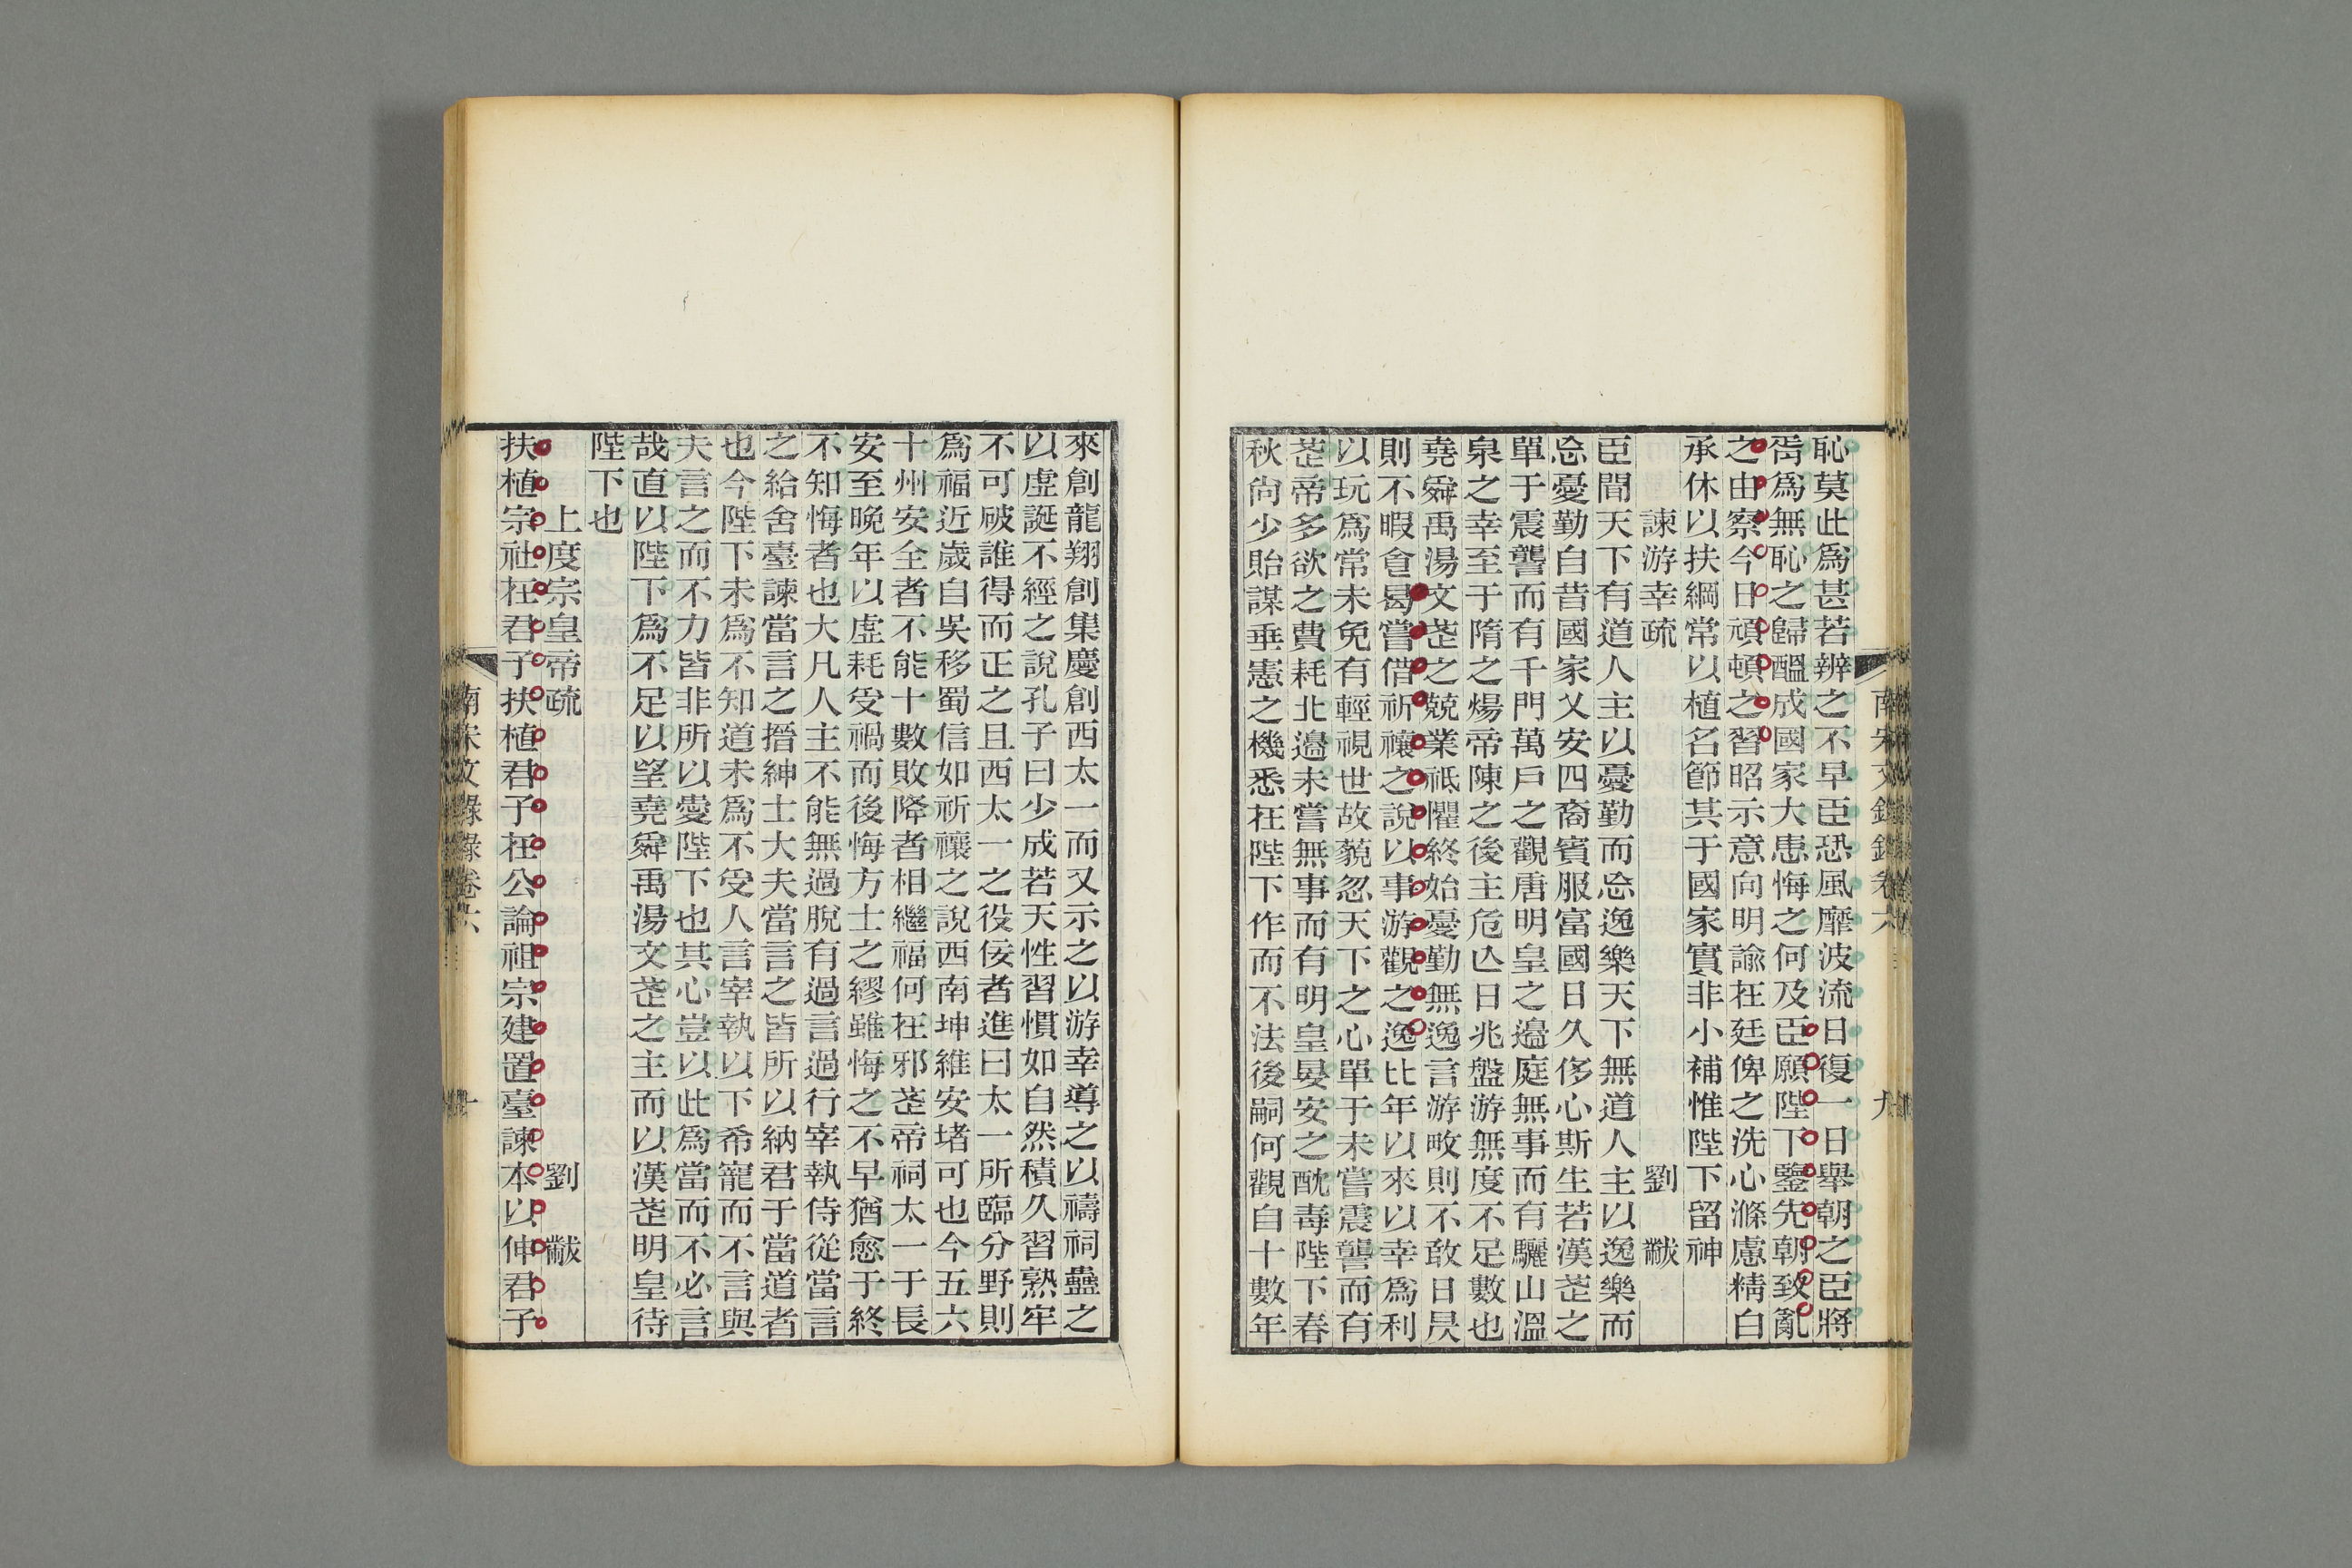 恥莫此爲甚若辨之不早臣恐風靡波流日復一日舉朝之臣將
胥爲無恥之歸醞成國家大患悔之何及臣願陛下鑒先朝致亂
之由察今日頑頓之習昭示意向明諭在廷俾之洗心滌慮精白
承休以扶綱常以植名節其于國家實非小補惟陛下留神
諫游幸疏 劉黻
臣聞天下有道人主以憂勤而忘逸樂天下無道人主以逸樂而
忘憂勤自昔國家乂安四裔賓服富國日久侈心斯生若漢武之
單于震讋而有千門萬戶之觀唐明皇之邊庭無事而有驪山溫
泉之幸至于隋之煬帝陳之後主危亡日兆盤游無度不足數也
堯舜禹湯文武之兢業祗懼終始憂勤無逸言游畋則不敢日昃
則不暇食曷嘗借祈禳之說以事游觀之逸比年以來以幸爲利
以玩爲常未免有輕視世故藐忽天下之心單于未嘗震讋而有
武帝多欲之費耗北邊未嘗無事而有明皇晏安之酖毒陛下春
秋尙少貽謀垂憲之機悉在陛下作而不法後嗣何觀自十數年
南宋文錄錄卷六 九
來創龍翔創集慶創西太一而又示之以游幸導之以禱祠蠱之
以虛誕不經之說孔子曰少成若天性習慣如自然積久習熟牢
不可破誰得而正之且西太一之役佞者進曰太一所臨分野則
爲福近歲自吳移蜀信如祈禳之說西南坤維安堵可也今五六
十州安全者不能十數敗降者相繼福何在邪武帝祠太一于長
安至晚年以虛耗受禍而後悔方士之繆雖悔之不早猶愈于終
不知悔者也大凡人主不能無過脫有過言過行宰執侍從當言
之給舍臺諫當言之搢紳士大夫當言之皆所以納君于當道者
也今陛下未爲不知道未爲不受人言宰執以下希寵而不言與
夫言之而不力皆非所以愛陛下也其心豈以此爲當而不必言
哉直以陛下爲不足以望堯舜禹湯文武之主而以漢武明皇待
陛下也
上度宗皇帝疏 劉黻
扶植宗社在君子扶植君子在公論祖宗建置臺諫本以伸君子
南宋文錄錄卷六 十